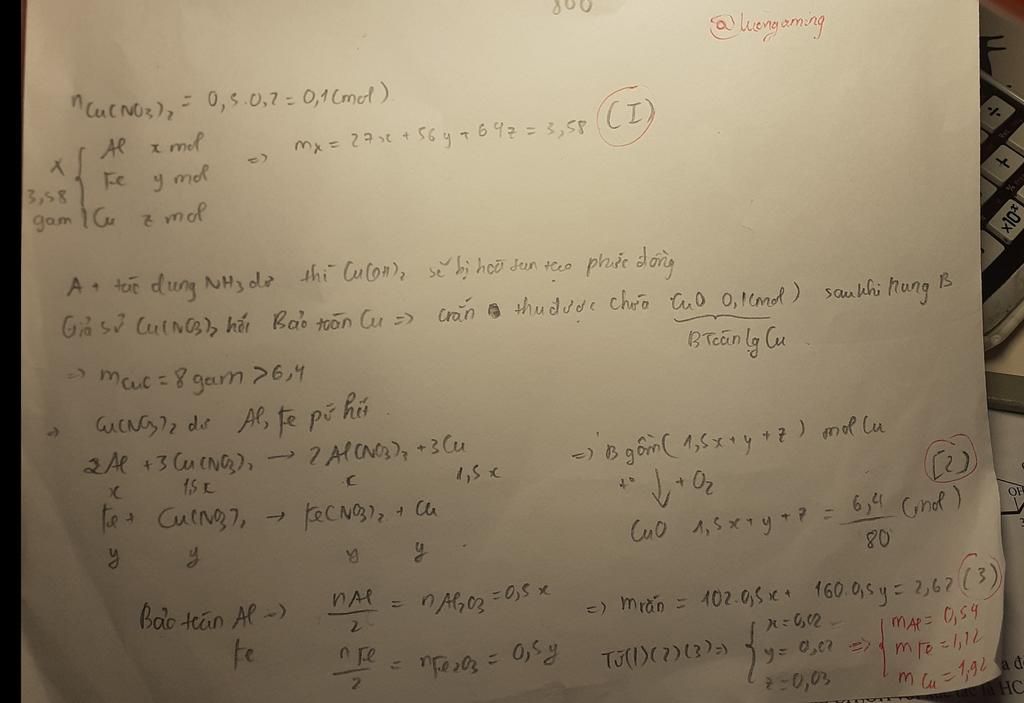 800
@luongaming
nCu(NO3)2 = 0,5.0,2 = 0,1 (mol)
X 3,58 gam { Al x mol
Fe y mol
Cu z mol
=> mx = 27x + 56y + 64z = 3,58 (I)
A + tác dụng NH3 dư thì Cu(OH)2 sẽ bị hoà tan tạo phức đồng
Giả sử Cu(NO3)2 hết Bảo toàn Cu => crắn thu được chứa CuO 0,1 (mol) sau khi nung B
BT toàn lg Cu
=> mCuO = 8 gam > 6,4
=> Cu(NO3)2 dư Al, Fe pứ hết
2Al + 3Cu(NO3)2 → 2Al(NO3)3 + 3Cu
x 1,5x x 1,5x
Fe + Cu(NO3)2 → Fe(NO3)2 + Cu
y y y y
=> B gồm (1,5x + y + z) mol Cu
t° ↓ + O2
CuO 1,5x + y + z = 6,4/80 (mol) (2)
Bảo toàn Al => nAl/2 = nAl2O3 = 0,5x
Fe nFe/2 = nFe2O3 = 0,5y
=> mrắn = 102.0,5x + 160.0,5y = 2,62 (3)
Từ (1)(2)(3) => { x = 0,02
y = 0,02
z = 0,03
=> { mAl = 0,54
mFe = 1,12
mCu = 1,92
÷
+
×10ˣ
OH
HC